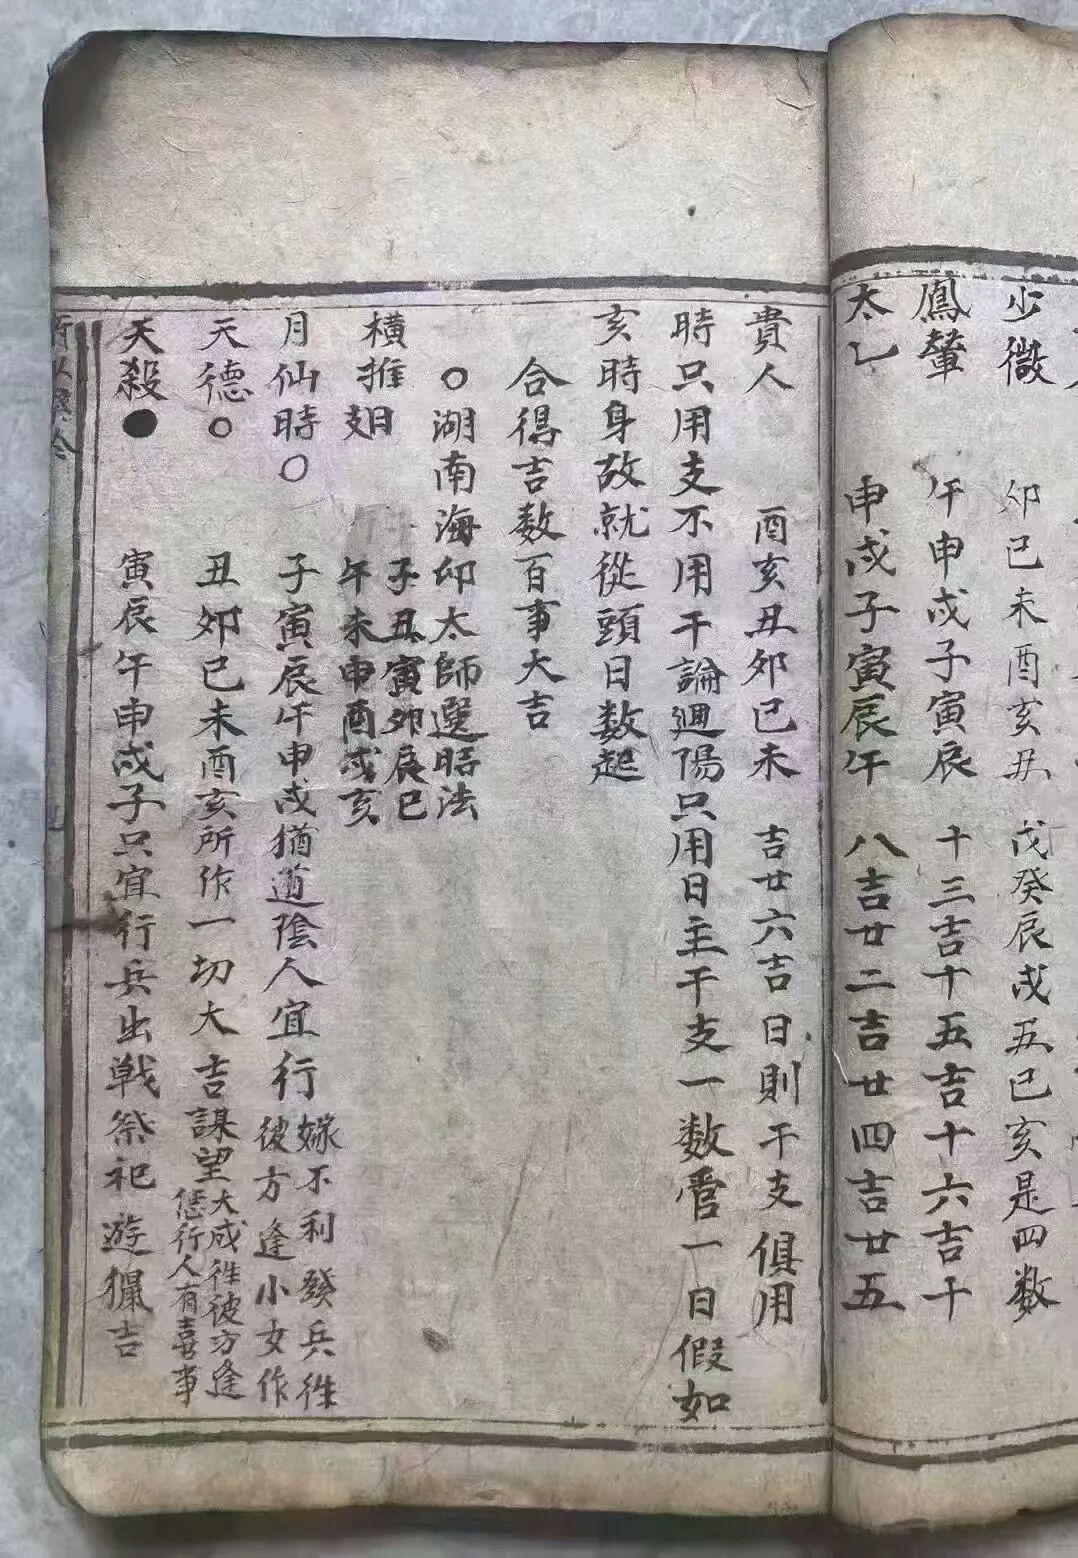 少微 卯巳未酉亥丑 戊癸辰戌五巳亥是四数
鳳輦 午申戌子寅辰 十三吉十五吉十六吉十
太乙 申戌子寅辰午 八吉廿二吉廿四吉廿五
貴人 酉亥丑卯巳未 吉廿六吉日則干支俱用
時只用支不用干論週陽只用日主干支一数管一日假如
亥時身故就從頭日数起
合得吉数百事大吉
○湖南海卯太師選時法
橫推
支 子丑寅卯辰巳
午未申酉戌亥
月仙時○ 子寅辰午申戌猶道陰人宜行嫁不利發兵徃
彼方逢小女作
天德○ 丑卯巳未酉亥所作一切大吉謀望大成徃彼方逢
行人有喜事
天殺● 寅辰午申戌子只宜行兵出戰祭祀遊獵吉